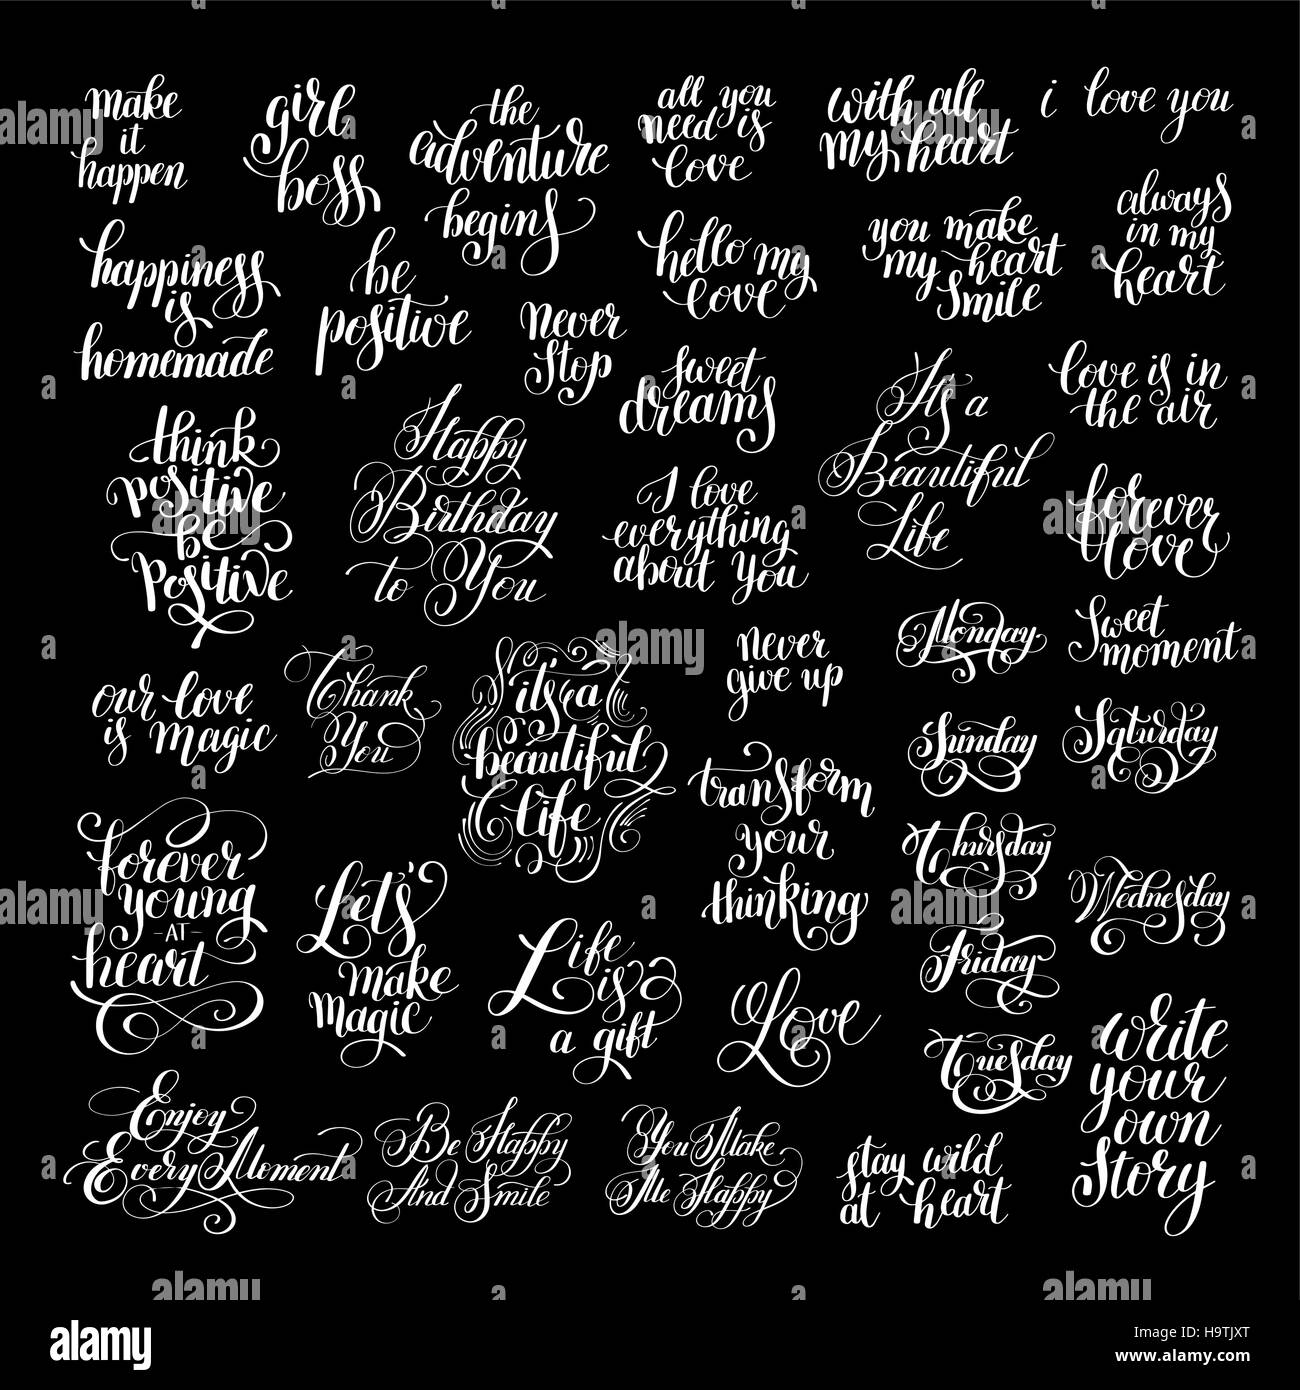 make
it
happen
girl
boss
the
adventure
begins
all you
need is
love
with all
my heart
i love you
happiness
is
homemade
be
positive
never
stop
hello my
love
you make
my heart
smile
always
in my
heart
sweet
dreams
It's a
Beautiful
Life
love is in
the air
think
positive
be
positive
Happy
Birthday
to You
I love
everything
about you
forever
love
our love
is magic
Thank
You
it's a
beautiful
life
never
give up
Monday
Sweet
moment
Sunday
Saturday
transform
your
thinking
Thursday
Wednesday
Friday
Tuesday
forever
young
-AT-
heart
Let's
make
magic
Life
is
a gift
Love
write
your
own
story
Enjoy
Every Moment
Be Happy
And Smile
You Make
Me Happy
stay wild
at heart
alamy
Image ID: H9TJXT
www.alamy.com